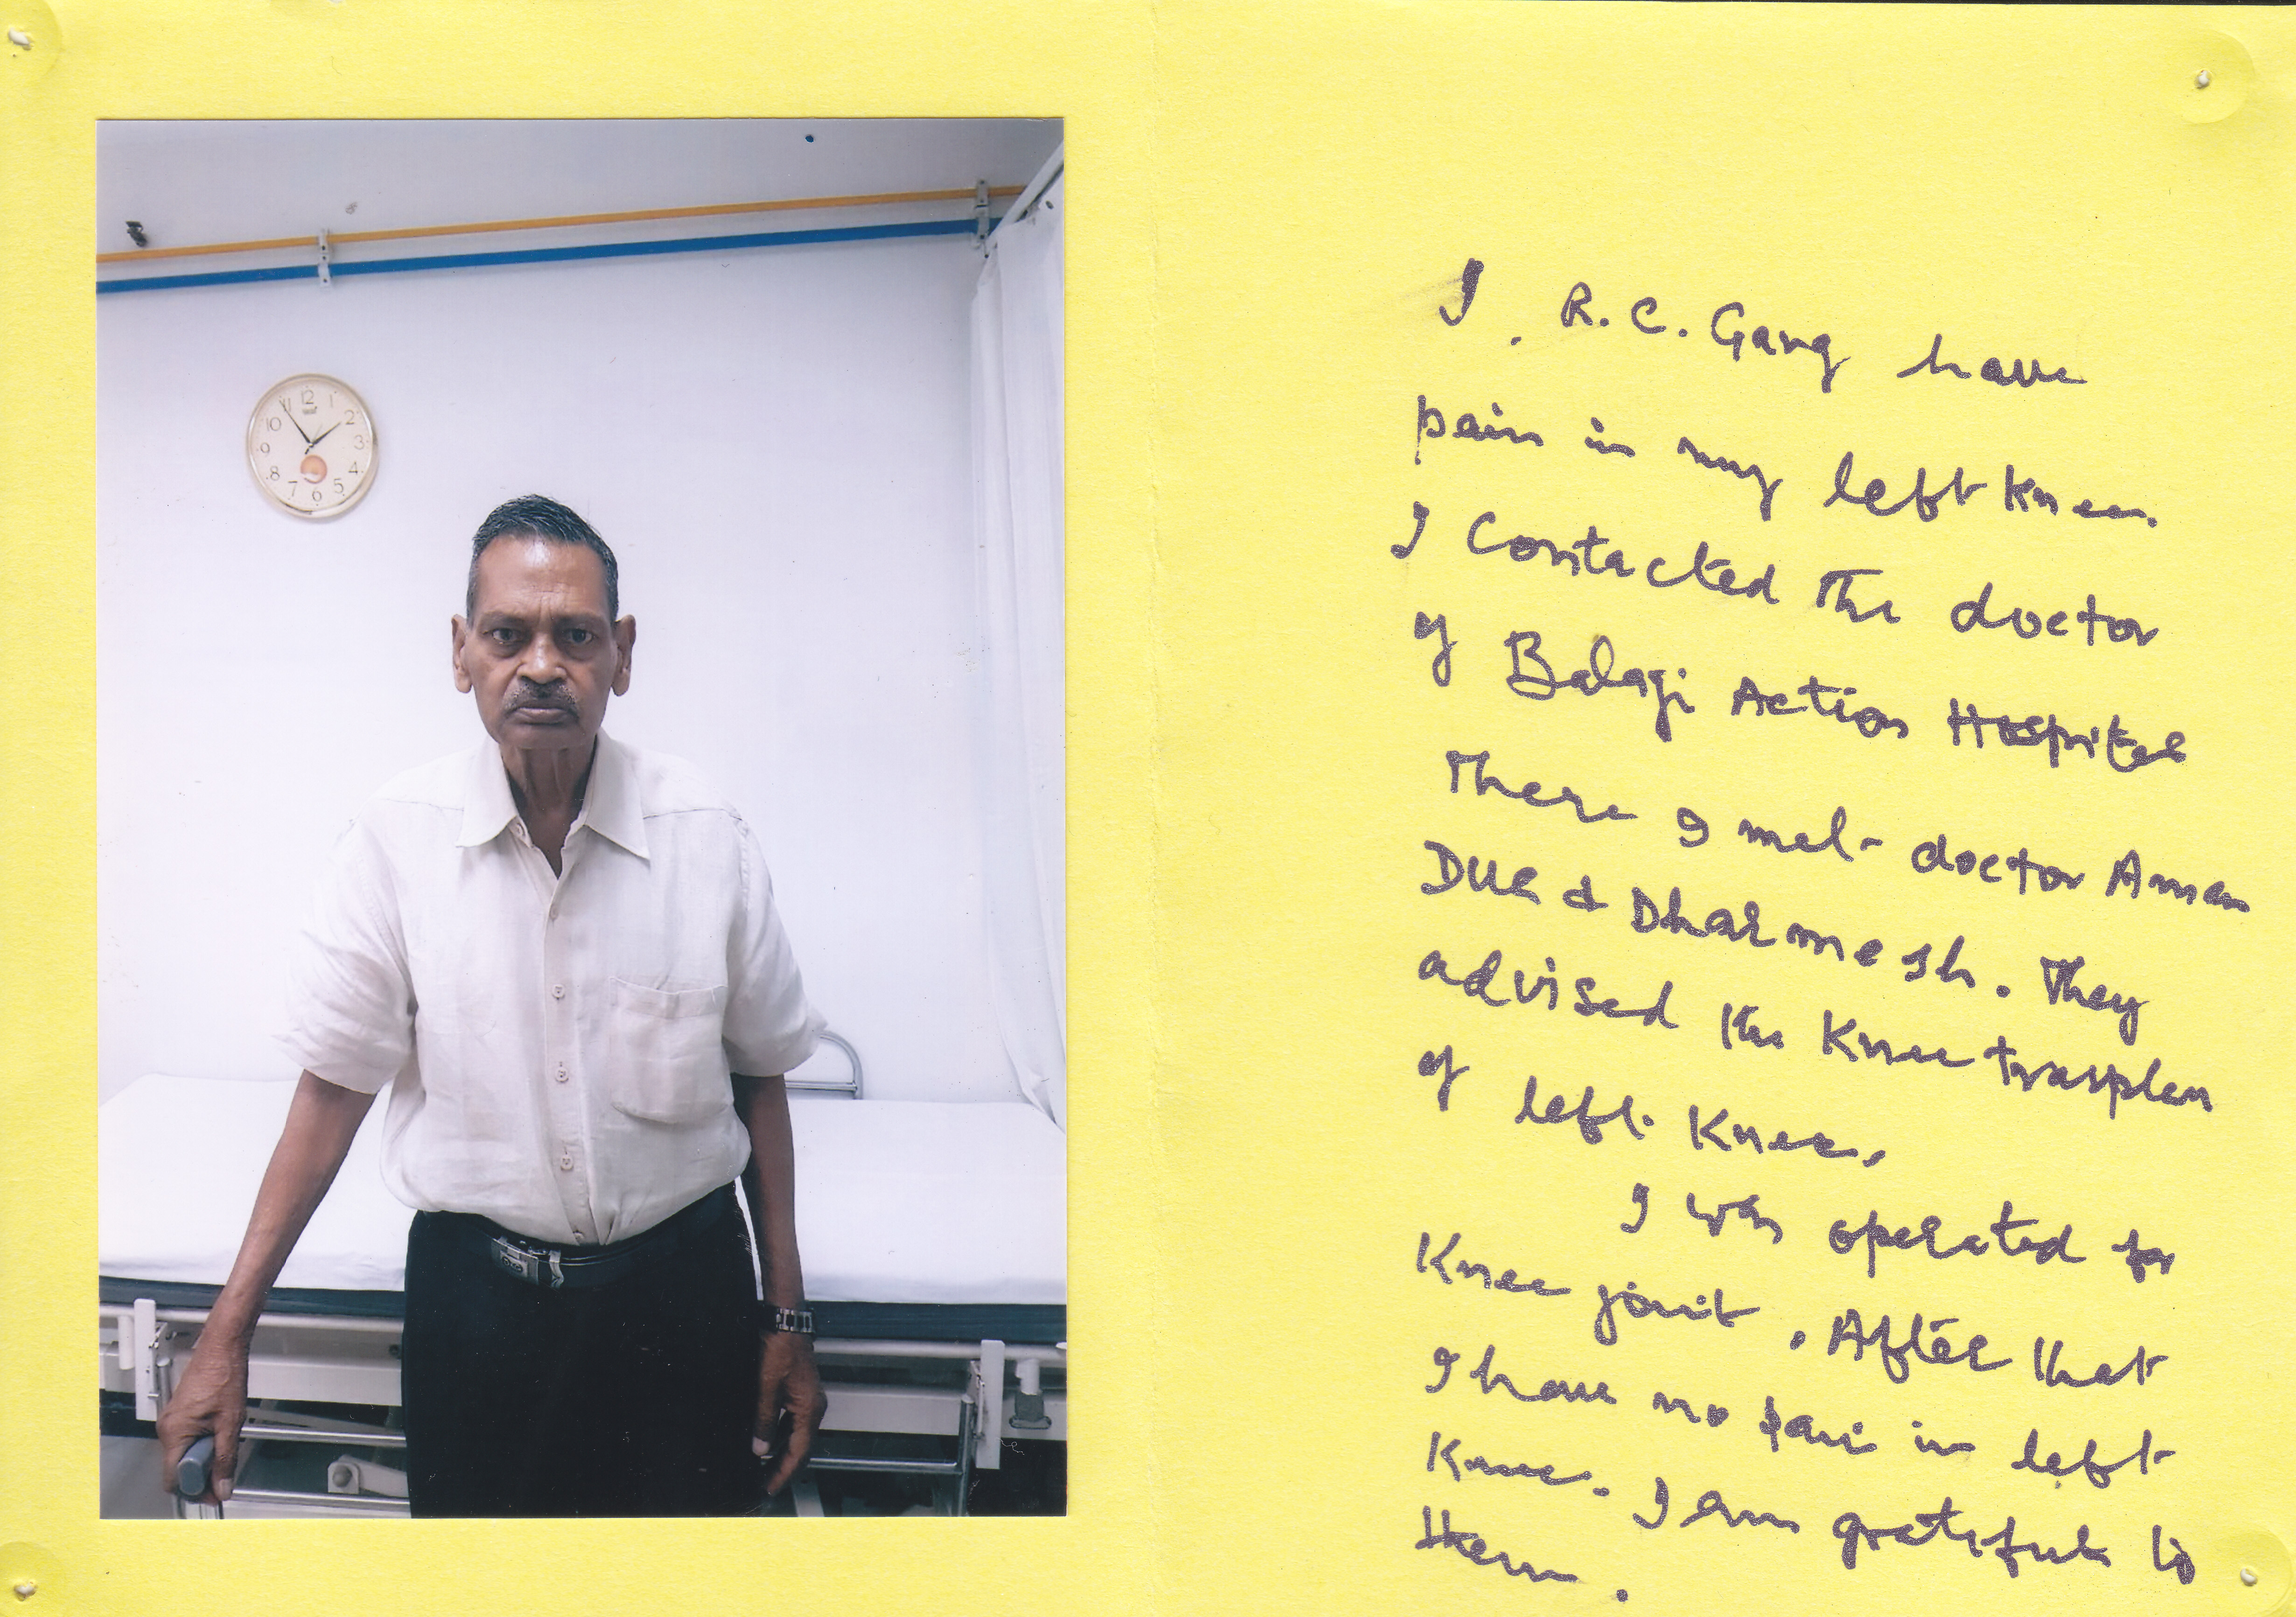 I, R.C. Garg have
pain in my left knee.
I contacted the doctor
of Balagi Action Hospital
There I met doctor Aman
Dua & Dharmesh. They
advised the Knee trasplan
of left Knee.
I was operated for
Knee joint. After that
I have no pain in left
Knee. I am grateful to
them.
12
1
2
3
4
5
6
7
8
9
10
11